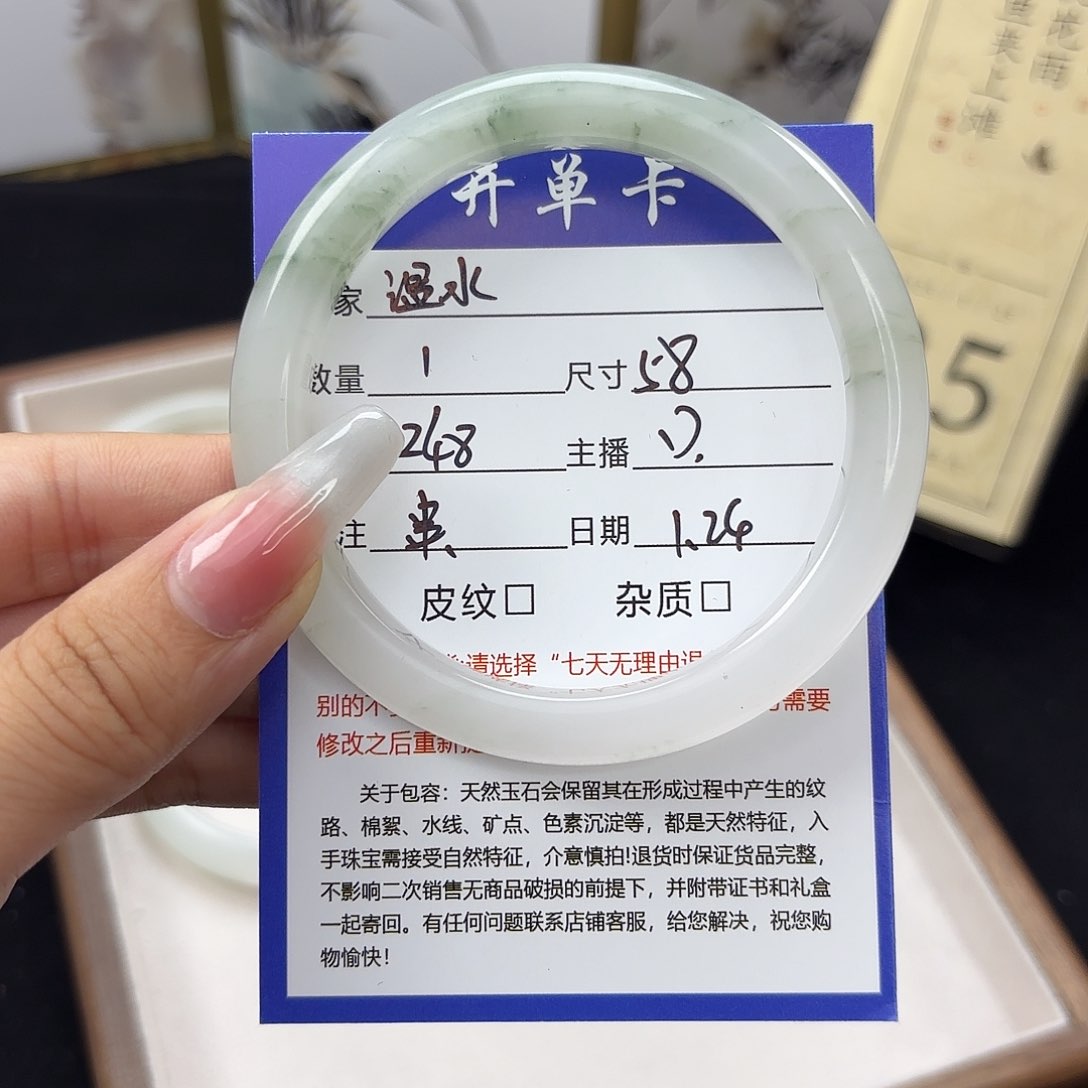 开单卡
家 温水
数量 1 尺寸 58
248 主播
注 日期 1.24
皮纹□ 杂质□
请选择“七天无理由
别的不 需要
修改之后重新
关于包容：天然玉石会保留其在形成过程中产生的纹
路、棉絮、水线、矿点、色素沉淀等，都是天然特征，入
手珠宝需接受自然特征，介意慎拍!退货时保证货品完整，
不影响二次销售无商品破损的前提下，并附带证书和礼盒
一起寄回。有任何问题联系店铺客服，给您解决，祝您购
物愉快！
5